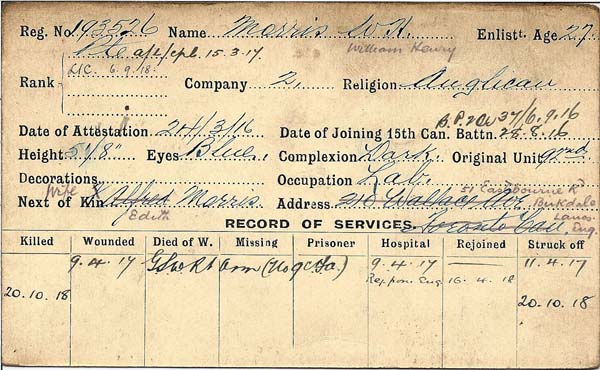 Reg. No. 193526 Name Morris W.H. Enlistt. Age 27
William Henry
Pte a/L/cpl. 15.3.17.
L/C. 6.9.18.
Rank Company 2. Religion Anglican
B.P.2 O's 37/6.9.16
Date of Attestation 24/3/16 Date of Joining 15th Can. Battn. 28.8.16
Height 5'1/8" Eyes Blue. Complexion Dark. Original Unit 92nd
Decorations Occupation Lab.
Wife 51 Eastbourne Rd
Next of Kin Alfred Morris. Address 210 Wallace Ave. Birkdale
Edith Toronto Can. Lancs. Eng.
RECORD OF SERVICES.
Killed Wounded Died of W. Missing Prisoner Hospital Rejoined Struck off
9.4.17 GSW Rt Arm 9.4.17 — 11.4.17
20.10.18 Eng. 16.4.18 20.10.18